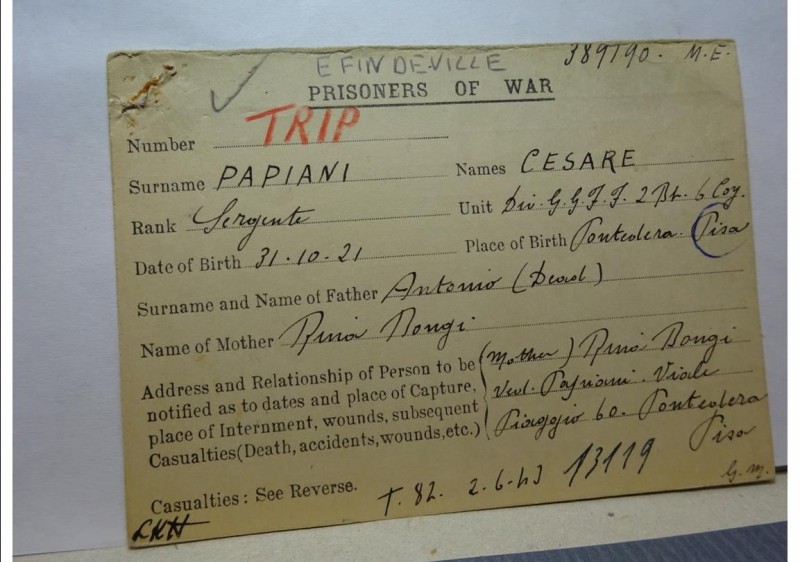 E FINDEVILLE 389190. M.E.
PRISONERS OF WAR
Number TRIP
Surname PAPIANI Names CESARE
Rank Sergente Unit Div. G.G.F.F. 2 Bt. 6 Coy.
Date of Birth 31.10.21 Place of Birth Pontedera. Pisa
Surname and Name of Father Antonio (Dead)
Name of Mother Rina Bongi
Address and Relationship of Person to be (Mother) Rina Bongi
notified as to dates and place of Capture, Ved. Papiani. Viale
place of Internment, wounds, subsequent Piaggio 60. Pontedera
Casualties(Death, accidents, wounds, etc.) Pisa
Casualties: See Reverse. T. 82. 2-6-43 13119 G.M.